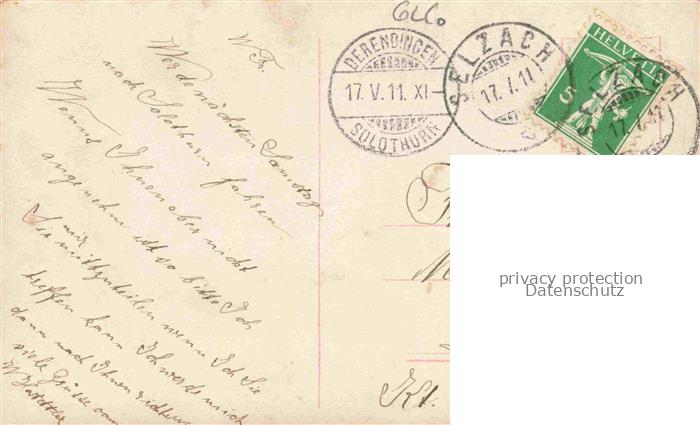 6220
W. Fr.
Werde nächsten Samstag
nach Solothurn fahren.
Wenns Ihnen aber nicht
angenehm ist so bitte Ich
Sie mir mitzuteilen wenn Ich Sie
treffen kann Ich werde mich
dann nach Ihnen richten
viele Grüsse von
DERENDINGEN
17. V. 11. XI
SOLOTHURN
SELZACH
17. 11
HELVETIA
5
17. 11
Kt.
privacy protection
Datenschutz